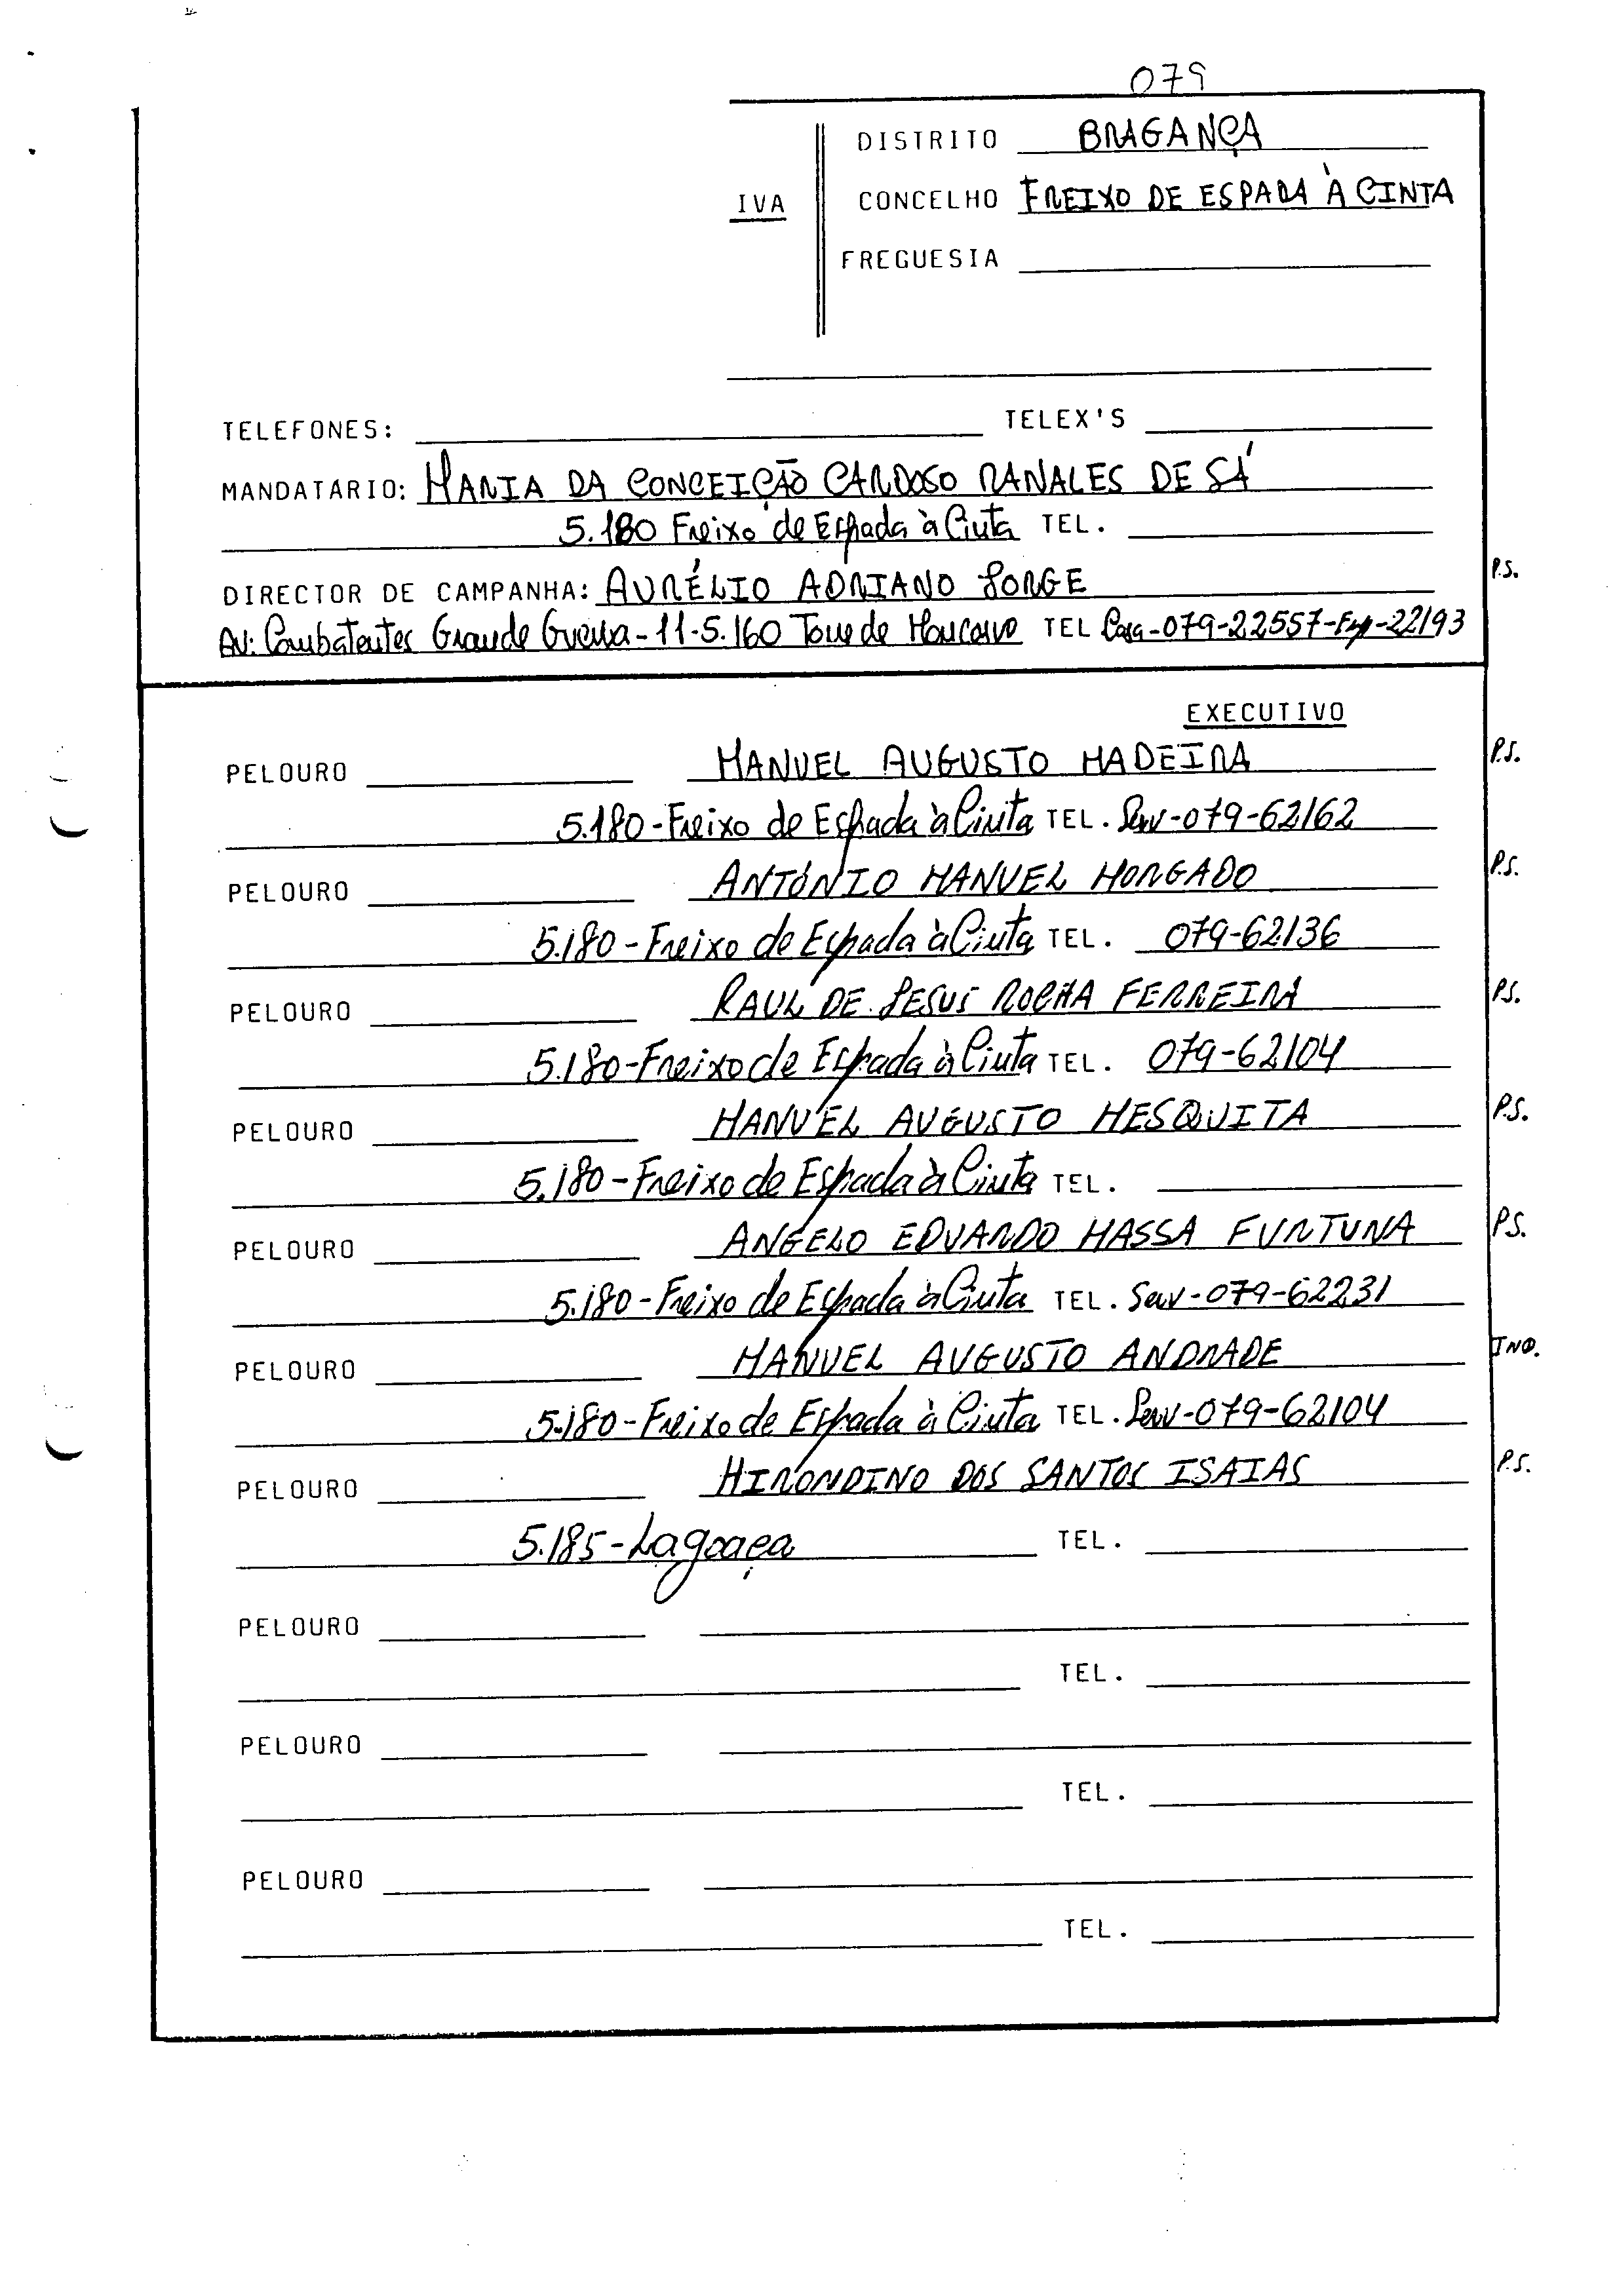 079
DISTRITO BRAGANÇA
IVA CONCELHO FREIXO DE ESPADA À CINTA
FREGUESIA
TELEFONES: TELEX'S
MANDATARIO: MARIA DA CONCEIÇÃO CARDOSO RANALES DE SÁ
5.180 Freixo de Espada à Cinta TEL.
DIRECTOR DE CAMPANHA: AURÉLIO ADRIANO JORGE P.S.
AV: Combatentes Grande Guerra-11-5.160 Torre de Moncorvo TEL Casa-079-22557-Emp-22193
EXECUTIVO
PELOURO MANUEL AUGUSTO MADEIRA P.S.
5.180-Freixo de Espada à Cinta TEL. Serv-079-62162
PELOURO ANTÓNIO MANUEL MORGADO P.S.
5.180-Freixo de Espada à Cinta TEL. 079-62136
PELOURO RAUL DE JESUS ROCHA FERREIRA P.S.
5.180-Freixo de Espada à Cinta TEL. 079-62104
PELOURO MANUEL AUGUSTO MESQUITA P.S.
5.180-Freixo de Espada à Cinta TEL.
PELOURO ANGELO EDUARDO MASSA FURTUNA P.S.
5.180-Freixo de Espada à Cinta TEL. Serv-079-62231
PELOURO MANUEL AUGUSTO ANDRADE IND.
5.180-Freixo de Espada à Cinta TEL. Serv-079-62104
PELOURO HIRONDINO DOS SANTOS ISAIAS P.S.
5.185-Lagoaça TEL.
PELOURO
TEL.
PELOURO
TEL.
PELOURO
TEL.